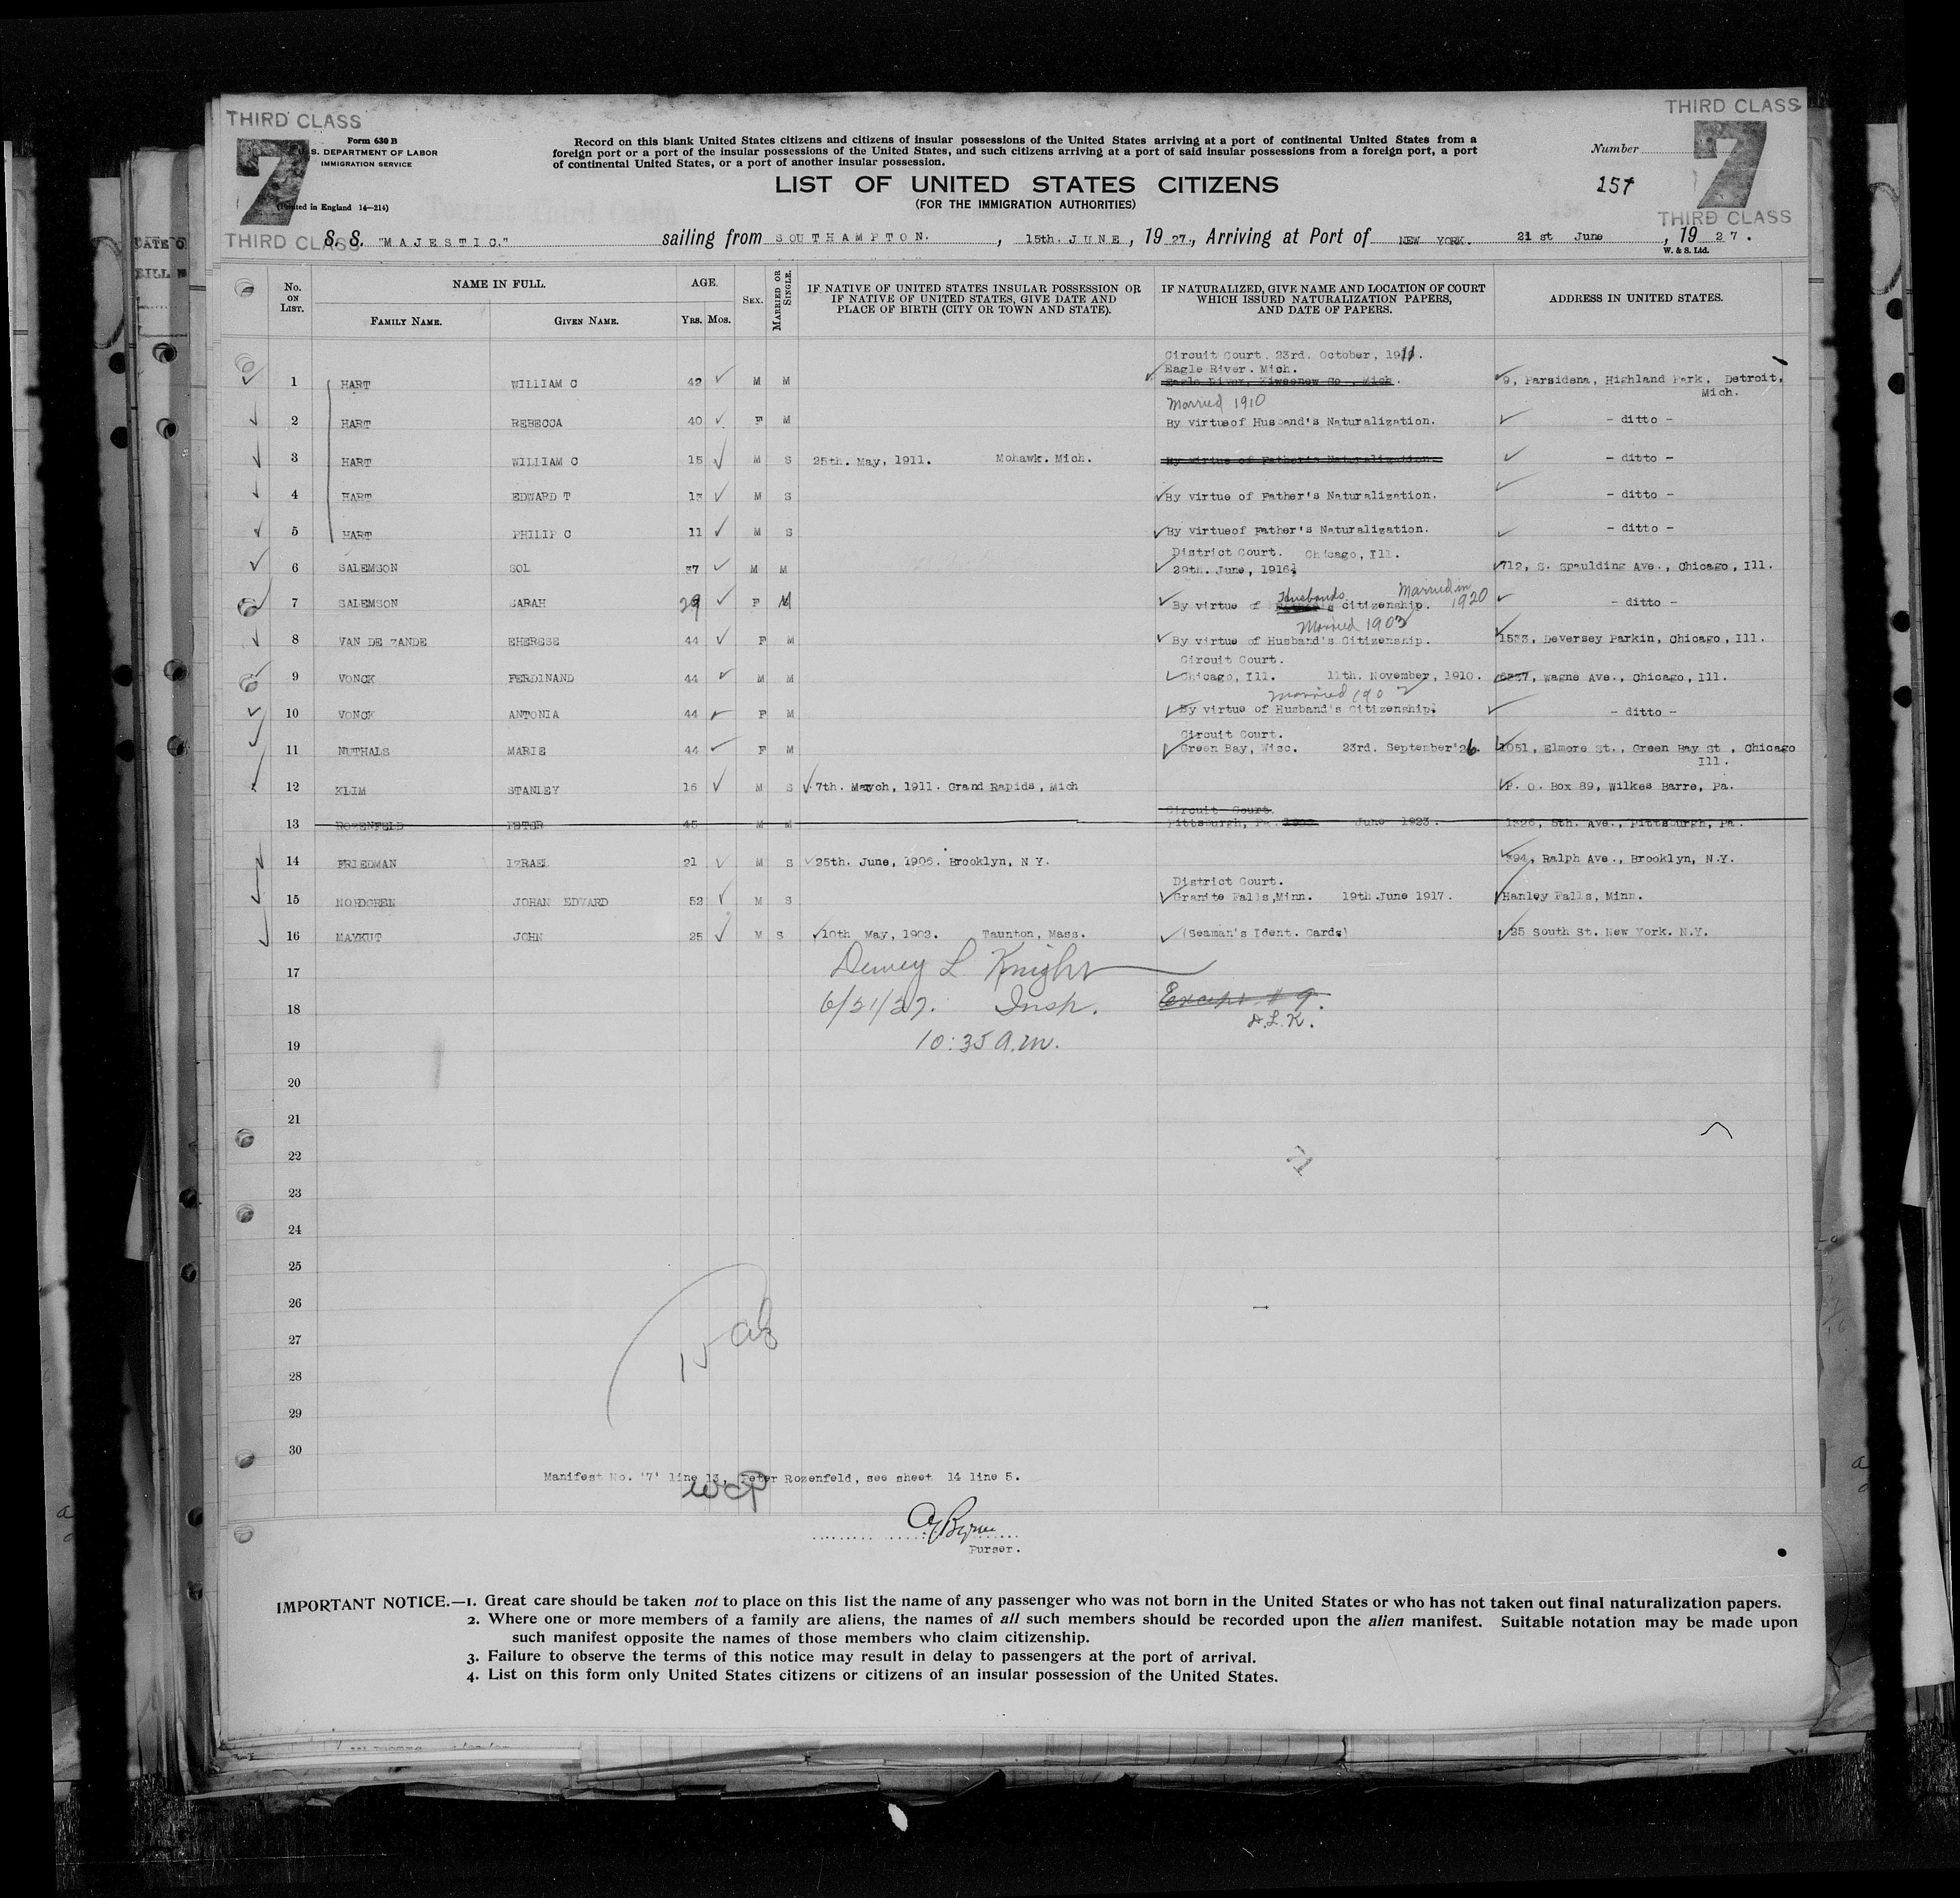 THIRD CLASS
THIRD CLASS
7
7
Form 630 B
S. DEPARTMENT OF LABOR
IMMIGRATION SERVICE
(Printed in England 14—214)
Record on this blank United States citizens and citizens of insular possessions of the United States arriving at a port of continental United States from a
foreign port or a port of the insular possessions of the United States, and such citizens arriving at a port of said insular possessions from a foreign port, a port
of continental United States, or a port of another insular possession.
Number
157
LIST OF UNITED STATES CITIZENS
(FOR THE IMMIGRATION AUTHORITIES)
Tourist Third Cabin
THIRD CLASS
THIRD CLASS
S. S. "MAJESTIC." sailing from SOUTHAMPTON. , 15th. JUNE , 19 27., Arriving at Port of NEW YORK. 21 st June , 19 27.
W. & S. Ltd.
No. ON LIST. NAME IN FULL. AGE. SEX. MARRIED OR SINGLE. IF NATIVE OF UNITED STATES INSULAR POSSESSION OR IF NATIVE OF UNITED STATES, GIVE DATE AND PLACE OF BIRTH (CITY OR TOWN AND STATE). IF NATURALIZED, GIVE NAME AND LOCATION OF COURT WHICH ISSUED NATURALIZATION PAPERS, AND DATE OF PAPERS. ADDRESS IN UNITED STATES.
FAMILY NAME. GIVEN NAME. YRS. MOS.
Circuit Court. 23rd. October, 1911.
Eagle River. Mich.
1 HART WILLIAM C 42 M M Eagle River, Kiweenew Co, Mich. 9, Parsidena, Highland Park, Detroit,
Mich.
Married 1910
2 HART REBECCA 40 F M By virtueof Husband's Naturalization. - ditto -
3 HART WILLIAM C 15 M S 25th. May, 1911. Mohawk. Mich. By virtue of Father's Naturalization. - ditto -
4 HART EDWARD T 13 M S By virtue of Father's Naturalization. - ditto -
5 HART PHILIP C 11 M S By virtueof Father's Naturalization. - ditto -
District Court. Chicago, Ill.
6 SALEMSON SOL 37 M M 29th. June, 1916. 712, S. Spaulding Ave., Chicago, Ill.
Husbands Married in 1920
7 SALEMSON SARAH 29 F M By virtue of citizenship. - ditto -
Married 1903
8 VAN DE ZANDE EHERESE 44 F M By virtue of Husband's Citizenship. 1533, Deversey Parkin, Chicago, Ill.
Circuit Court.
9 VONCK FERDINAND 44 M M Chicago, Ill. 11th. November, 1910. 6237, Wagne Ave., Chicago, Ill.
Married 1902
10 VONCK ANTONIA 44 F M By virtue of Husband's Citizenship. - ditto -
Circuit Court.
11 NUTHALS MARIE 44 F M Green Bay, Wisc. 23rd. September'26. 1051, Elmore St., Green Bay St , Chicago
Ill.
12 KLIM STANLEY 16 M S 7th. March, 1911. Grand Rapids, Mich P. O. Box 89, Wilkes Barre, Pa.
Circuit Court.
13 ROZENFELD PETER 45 M M Pittsburgh, Pa. June 1923. 1326, 5th. Ave., Pittsburgh, Pa.
14 FRIEDMAN IZRAEL 21 M S 25th. June, 1906. Brooklyn, N Y. 394, Ralph Ave., Brooklyn, N.Y.
District Court.
15 NORDGREN JOHAN EDVARD 52 M S Granite Falls,Minn. 19th June 1917. Hanley Falls, Minn.
16 MAYKUT JOHN 25 M S 10th May, 1902. Taunton, Mass. (Seaman's Ident. Cards) 25 South St. New York. N.Y.
17 Dewey L Knight
18 6/21/27. Insp. Except # 9.
D.L.K.
19 10:35 A.M.
20
21
22
23
24
25
26
27
28
29
30
Manifest No. '7' line 13, Peter Rozenfeld, see sheet 14 line 5.
Purser.
IMPORTANT NOTICE.—1. Great care should be taken not to place on this list the name of any passenger who was not born in the United States or who has not taken out final naturalization papers.
2. Where one or more members of a family are aliens, the names of all such members should be recorded upon the alien manifest. Suitable notation may be made upon
such manifest opposite the names of those members who claim citizenship.
3. Failure to observe the terms of this notice may result in delay to passengers at the port of arrival.
4. List on this form only United States citizens or citizens of an insular possession of the United States.